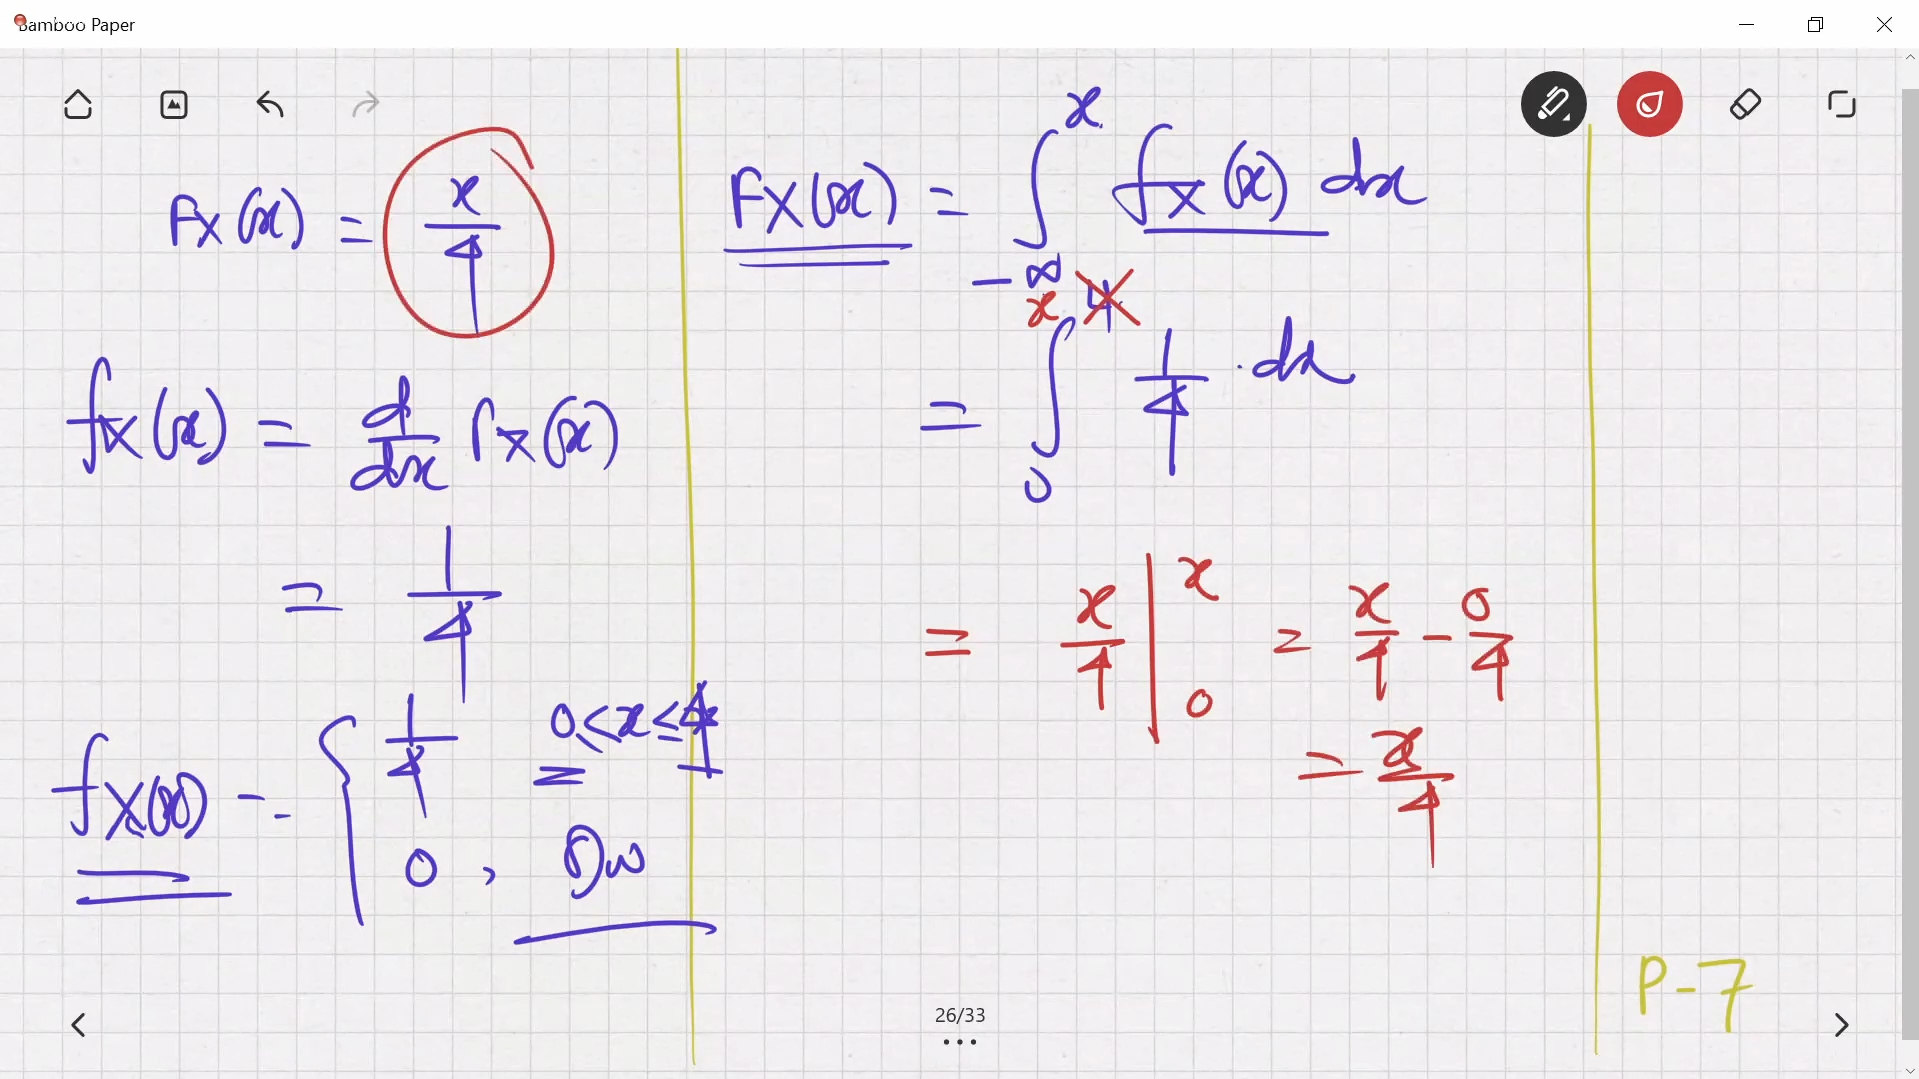 Bamboo Paper
Fx(x) = x/4
fx(x) = d/dx Fx(x)
= 1/4
fx(x) = { 1/4 0 ≤ x ≤ 4
0 , Ow
Fx(x) = ∫_{-∞}^{x} fx(x) dx
= ∫_{0}^{x 4} 1/4 · dx
= x/4 |_{0}^{x} = x/4 - 0/4
= x/4
P-7
26/33